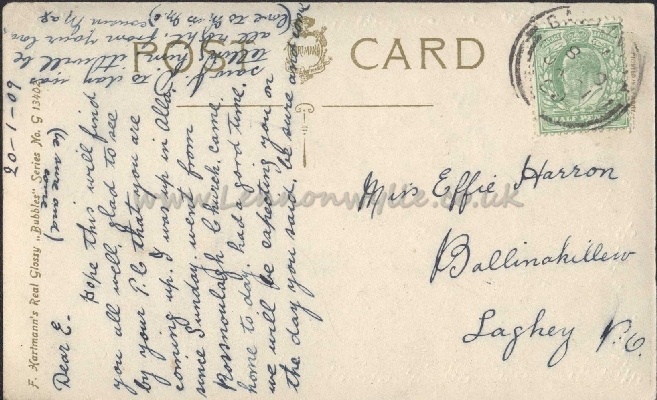 POST CARD
F. Hartmann's Real Glossy "Bubbles" Series No. G 1340
20-1-09
Dear E.
Hope this will find
you all well, glad to see
by your P.C that you are
coming up. I was up in Alla
since Sunday. went from
Rossnowlagh Church. came
home to day. had a good time.
we will be expecting you on
the day you said. be sure and come
(be sure and
come
said. I to day was
telling him it will be
all right. from your lov
cousin Mag
(love to
HALF PENNY
Miss Effie Harron
Ballinakillew
Laghey P.O.
www.Lennonwylie.co.uk